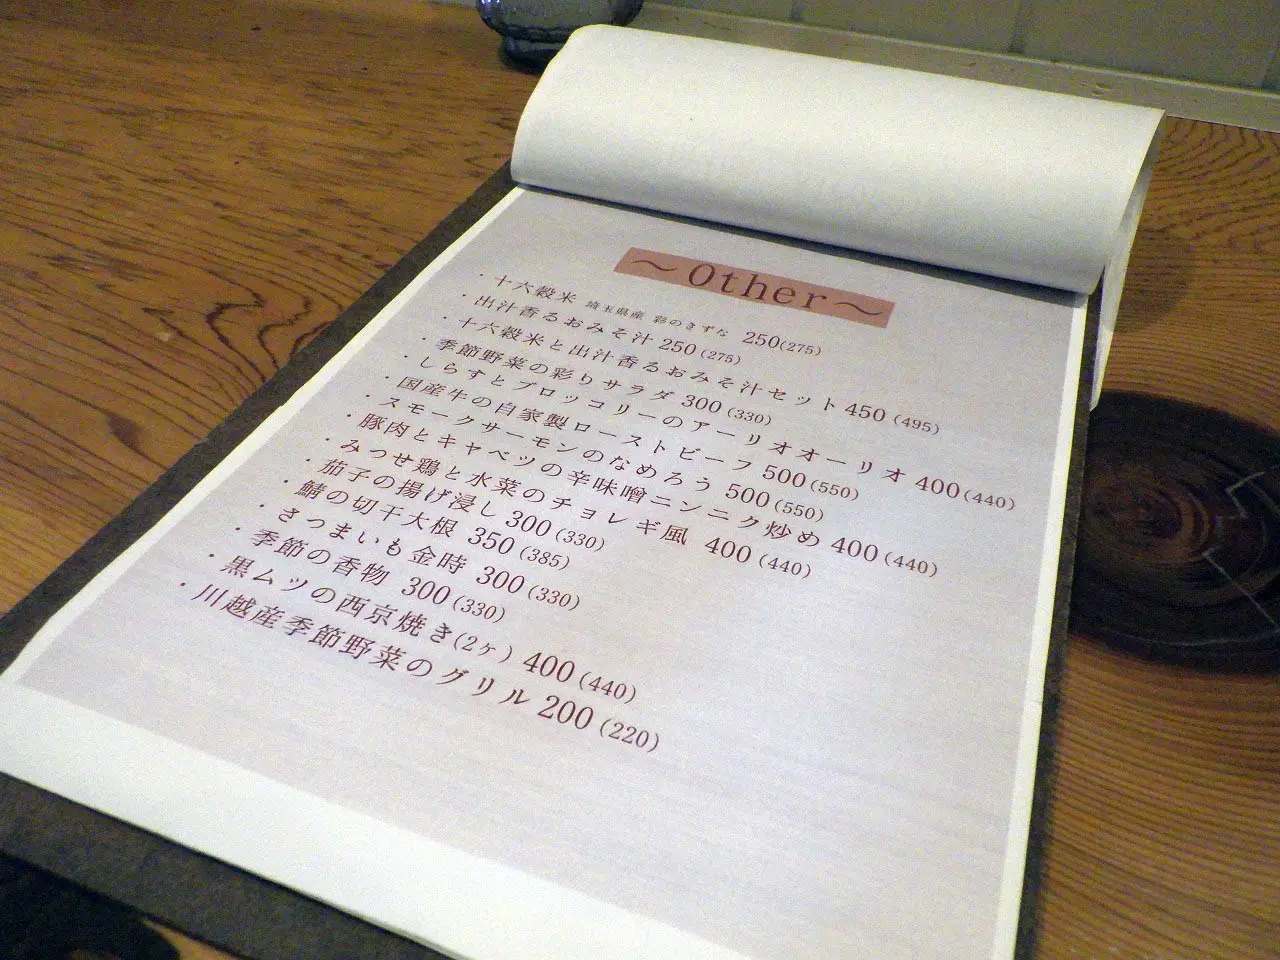 ～Other～
・十六穀米 埼玉県産 彩のきずな 250(275)
・出汁香るおみそ汁 250(275)
・十六穀米と出汁香るおみそ汁セット 450(495)
・季節野菜の彩りサラダ 300(330)
・しらすとブロッコリーのアーリオオーリオ 400(440)
・国産牛の自家製ローストビーフ 500(550)
・スモークサーモンのなめろう 500(550)
・豚肉とキャベツの辛味噌ニンニク炒め 400(440)
・みつせ鶏と水菜のチョレギ風 400(440)
・茄子の揚げ浸し 300(330)
・鯖の切干大根 350(385)
・さつまいも金時 300(330)
・季節の香物 300(330)
・黒ムツの西京焼き(2ヶ) 400(440)
・川越産季節野菜のグリル 200(220)